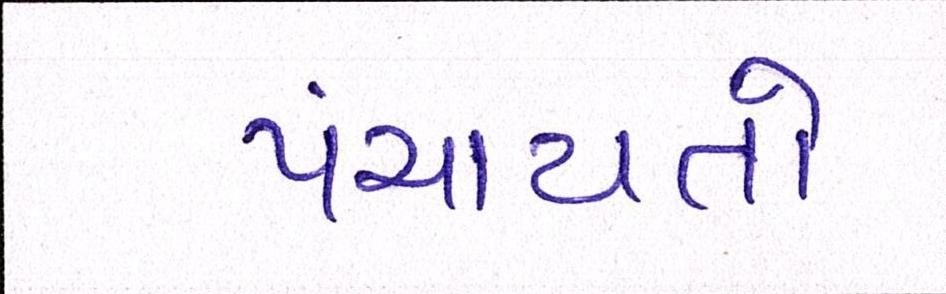 પંચાયતો